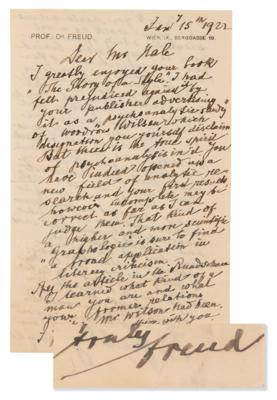 PROF. Dr. FREUD
WIEN, IX., BERGGASSE 19.
Jan 15th 1922
Dear Mr Hale
I greatly enjoyed your book
"The Story of a Style". I had
felt prejudiced against by
your publisher advertising
it as a psychoanalytic study
of Woodrow Wilson which
designation you yourself disclaim
But there is the true spirit
of psychoanalysis in it. You
have indeed opened up a
new field of analytic re-
search and your first results
however incomplete may be
correct as far as I can
judge them. That kind of
a higher and more scientific
"Graphology" is sure to find
a broad application in
literary criticism.
the article in the Rundschau
I learned what kind of a
man you are and what
your former relations
Mr Wilson had been.
with you
truly
Freud